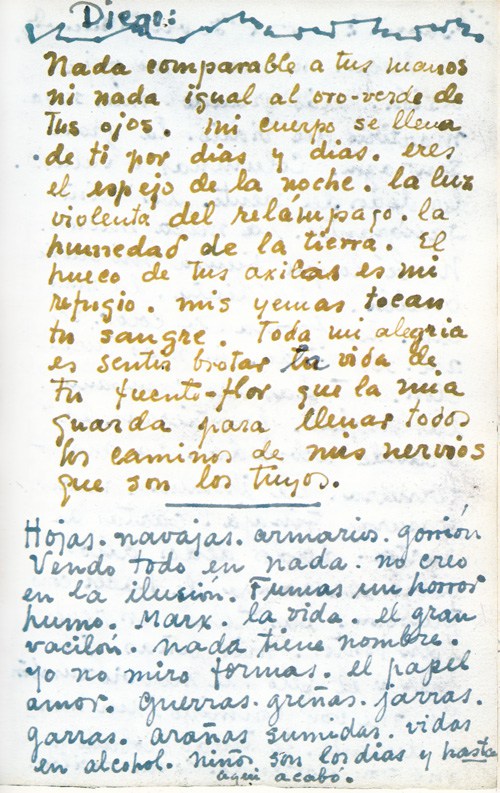 Diego:
Nada comparable a tus manos
ni nada igual al oro-verde de
tus ojos. mi cuerpo se llena
de ti por dias y dias. eres
el espejo de la noche. la luz
violenta del relámpago. la
humedad de la tierra. El
hueco de tus axilas es mi
refugio. mis yemas tocan
tu sangre. Toda mi alegria
es sentir brotar tu vida de
tu fuente-flor que la mia
guarda para llenar todos
los caminos de mis nervios
que son los tuyos.
Hojas. navajas. armarios. gorrión
Vendo todo en nada. no creo
en la ilusión. Fumas un horror
humo. Marx. la vida. el gran
vacilón. nada tiene nombre.
yo no miro formas. el papel
amor. Guerras. greñas. jarras.
garras. aranas sumidas. vidas
en alcohol. niños son los dias y hasta
aqui acabó.